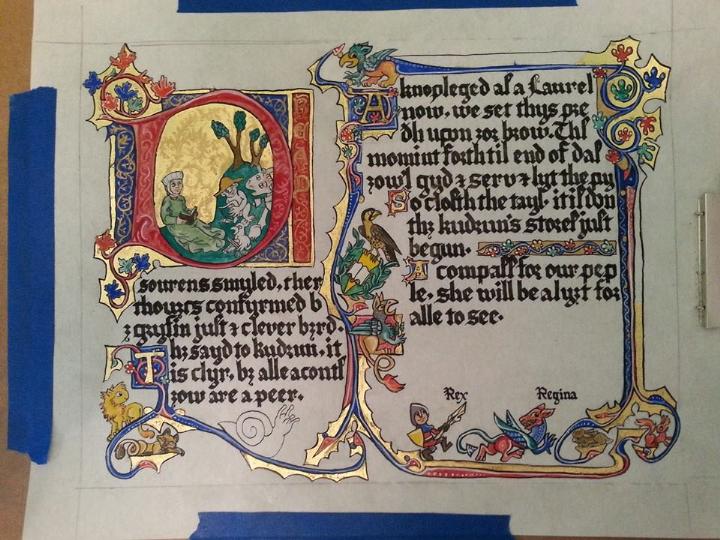 D
sourens smyled, ther
thourcs confyrmed b
gryfin just & clever byrd.
Thz sayd to kudrun, it
is clyr. bz alle acontl
zow are a peer.
A knopleged as a Laurel
now, we set thys pre
dh upon zor brow. Thl
momint forth til end of dal
zowl gyd & serv & lyt the
So closth the tayl. it is don
thz kudrun's stores just
begun.
A compass for our pep
le, she will be a lyzt for
alle to see.
Rex Regina